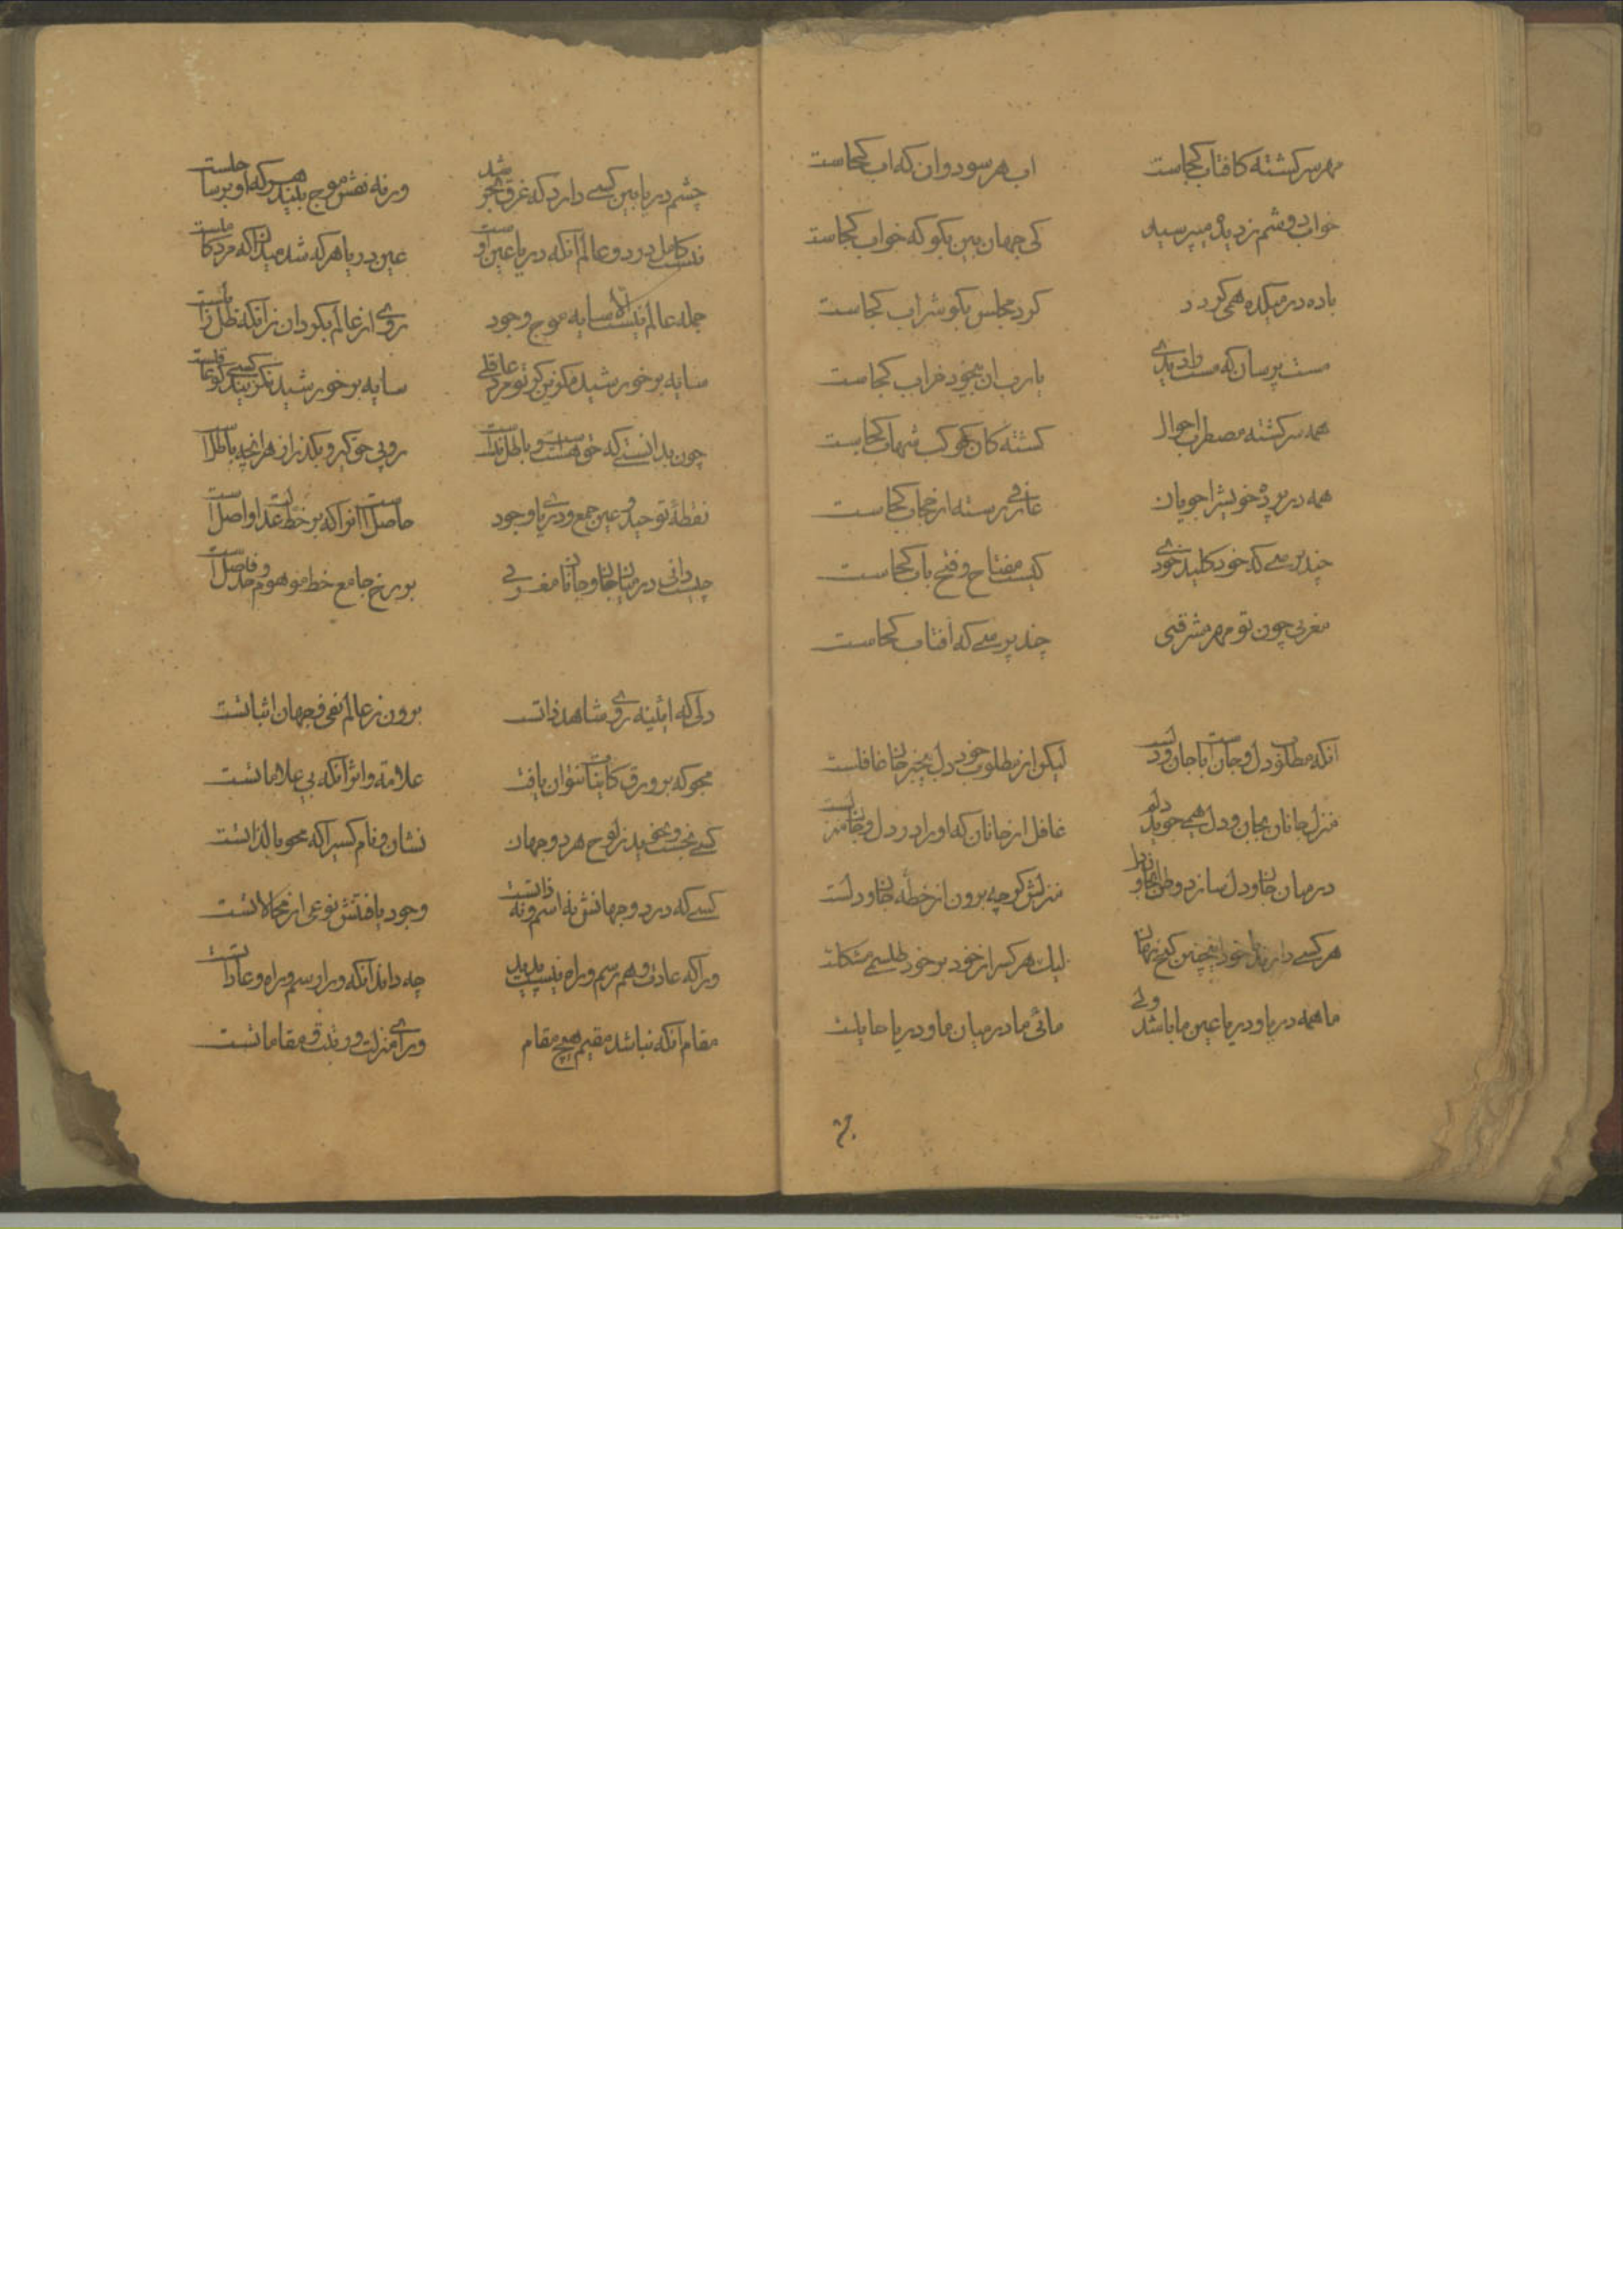 مهر سرکشته کافتاب کجاست اب هر سو دوان که اب کجاست
خواب دوشم ز دیده میپرسید کی جهان بین بکو که خواب کجاست
باده در میکده همی کردد کرد مجلس بکو شراب کجاست
مست پرسان که مست را دیدی یارب ان بیخود خراب کجاست
همه سرکشته مضطرب احوال کشته کان کوکب شهاب کجاست
همه در پرده خویش را جویان عارفی رسته از حجاب کجاست
چند پرسی که خود کلید خودی کیست مفتاح و فتح باب کجاست
مغربی چون تو مهر مشرقیی چند پرسی که افتاب کجاست
انکه مطلوب دل و جانست با جان و دلست لیکن از مطلوب خود دل بیخبر جان غافلست
منزل جانان بجان و دل همی جوید دلم غافل از جانان که او را در دل و جان منزلست
در میان جان و دل سازد وطن جانان ما منزلش کرچه برون از خطه جان و دلست
هر کسی دارد بدل خود اینچنین کنج نهان لیک هر کس را ز خود بر خود طلسم مشکلست
ما همه دریا و دریا عین ما باشد ولی مائی ما در میان ما و دریا حایلست
چشم دریا بین کسی دارد که غرق بحر شد ورنه نقش موج بیند هر که او بر ساحلست
نیست کامل در دو عالم انکه دریا عین اوست عین دریا هر که شد میدان که مرد کاملست
جمله عالم نیست الا سایه موج وجود روی از عالم بکردان زانکه ظل زایلست
سایه بر خورشید مکزین کر تو مرد عاقلی سایه بر خورشید نکزیند کسی کو عاقلست
چون بدانستی که حق هستست و باطل نیست روی حق کیر و بکذر از هر انچه باطلست
نقطه توحید و عین جمع و دریای وجود حاصلست انرا که بر خط عدا واصلست
چیست دانی در میان جان و جانان مغربی برزخ جامع خط موهوم حد فاصلست
دلی که ائینه روی شاهد ذاتست برون ز عالم نفی و جهان اثباتست
مجو که بر ورق کاینات نتوان یافت علامة و اثر انکه بی علاماتست
کسی نجست و نجوید ز لوح هر دو جهان نشان و نام کسیرا که محو بالذاتست
کسی که در دو جهانش نه اسم و نه ذاتست وجود یافتنش نوعی از محالاتست
ورا که عادت و هم رسم و راه نیست پدید چه داند انکه ورا رسم و راه و عاداتست
مقام انکه نباشد مقیم هیچ مقام ورای منزلت و رتبت و مقاماتست